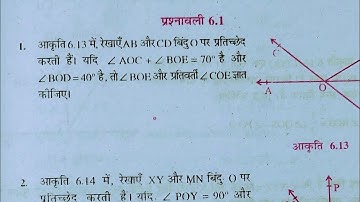 प्रश्नावली 6.1
1. आकृति 6.13 में, रेखाएँ AB और CD बिंदु O पर प्रतिच्छेद
करती हैं। यदि ∠ AOC + ∠ BOE = 70° है और
∠ BOD = 40° है, तो ∠ BOE और प्रतिवर्ती ∠ COE ज्ञात
कीजिए।
C
A
O
आकृति 6.13
2. आकृति 6.14 में, रेखाएँ XY और MN बिंदु O पर
प्रतिच्छेद करती हैं। यदि ∠ POY = 90° और
P